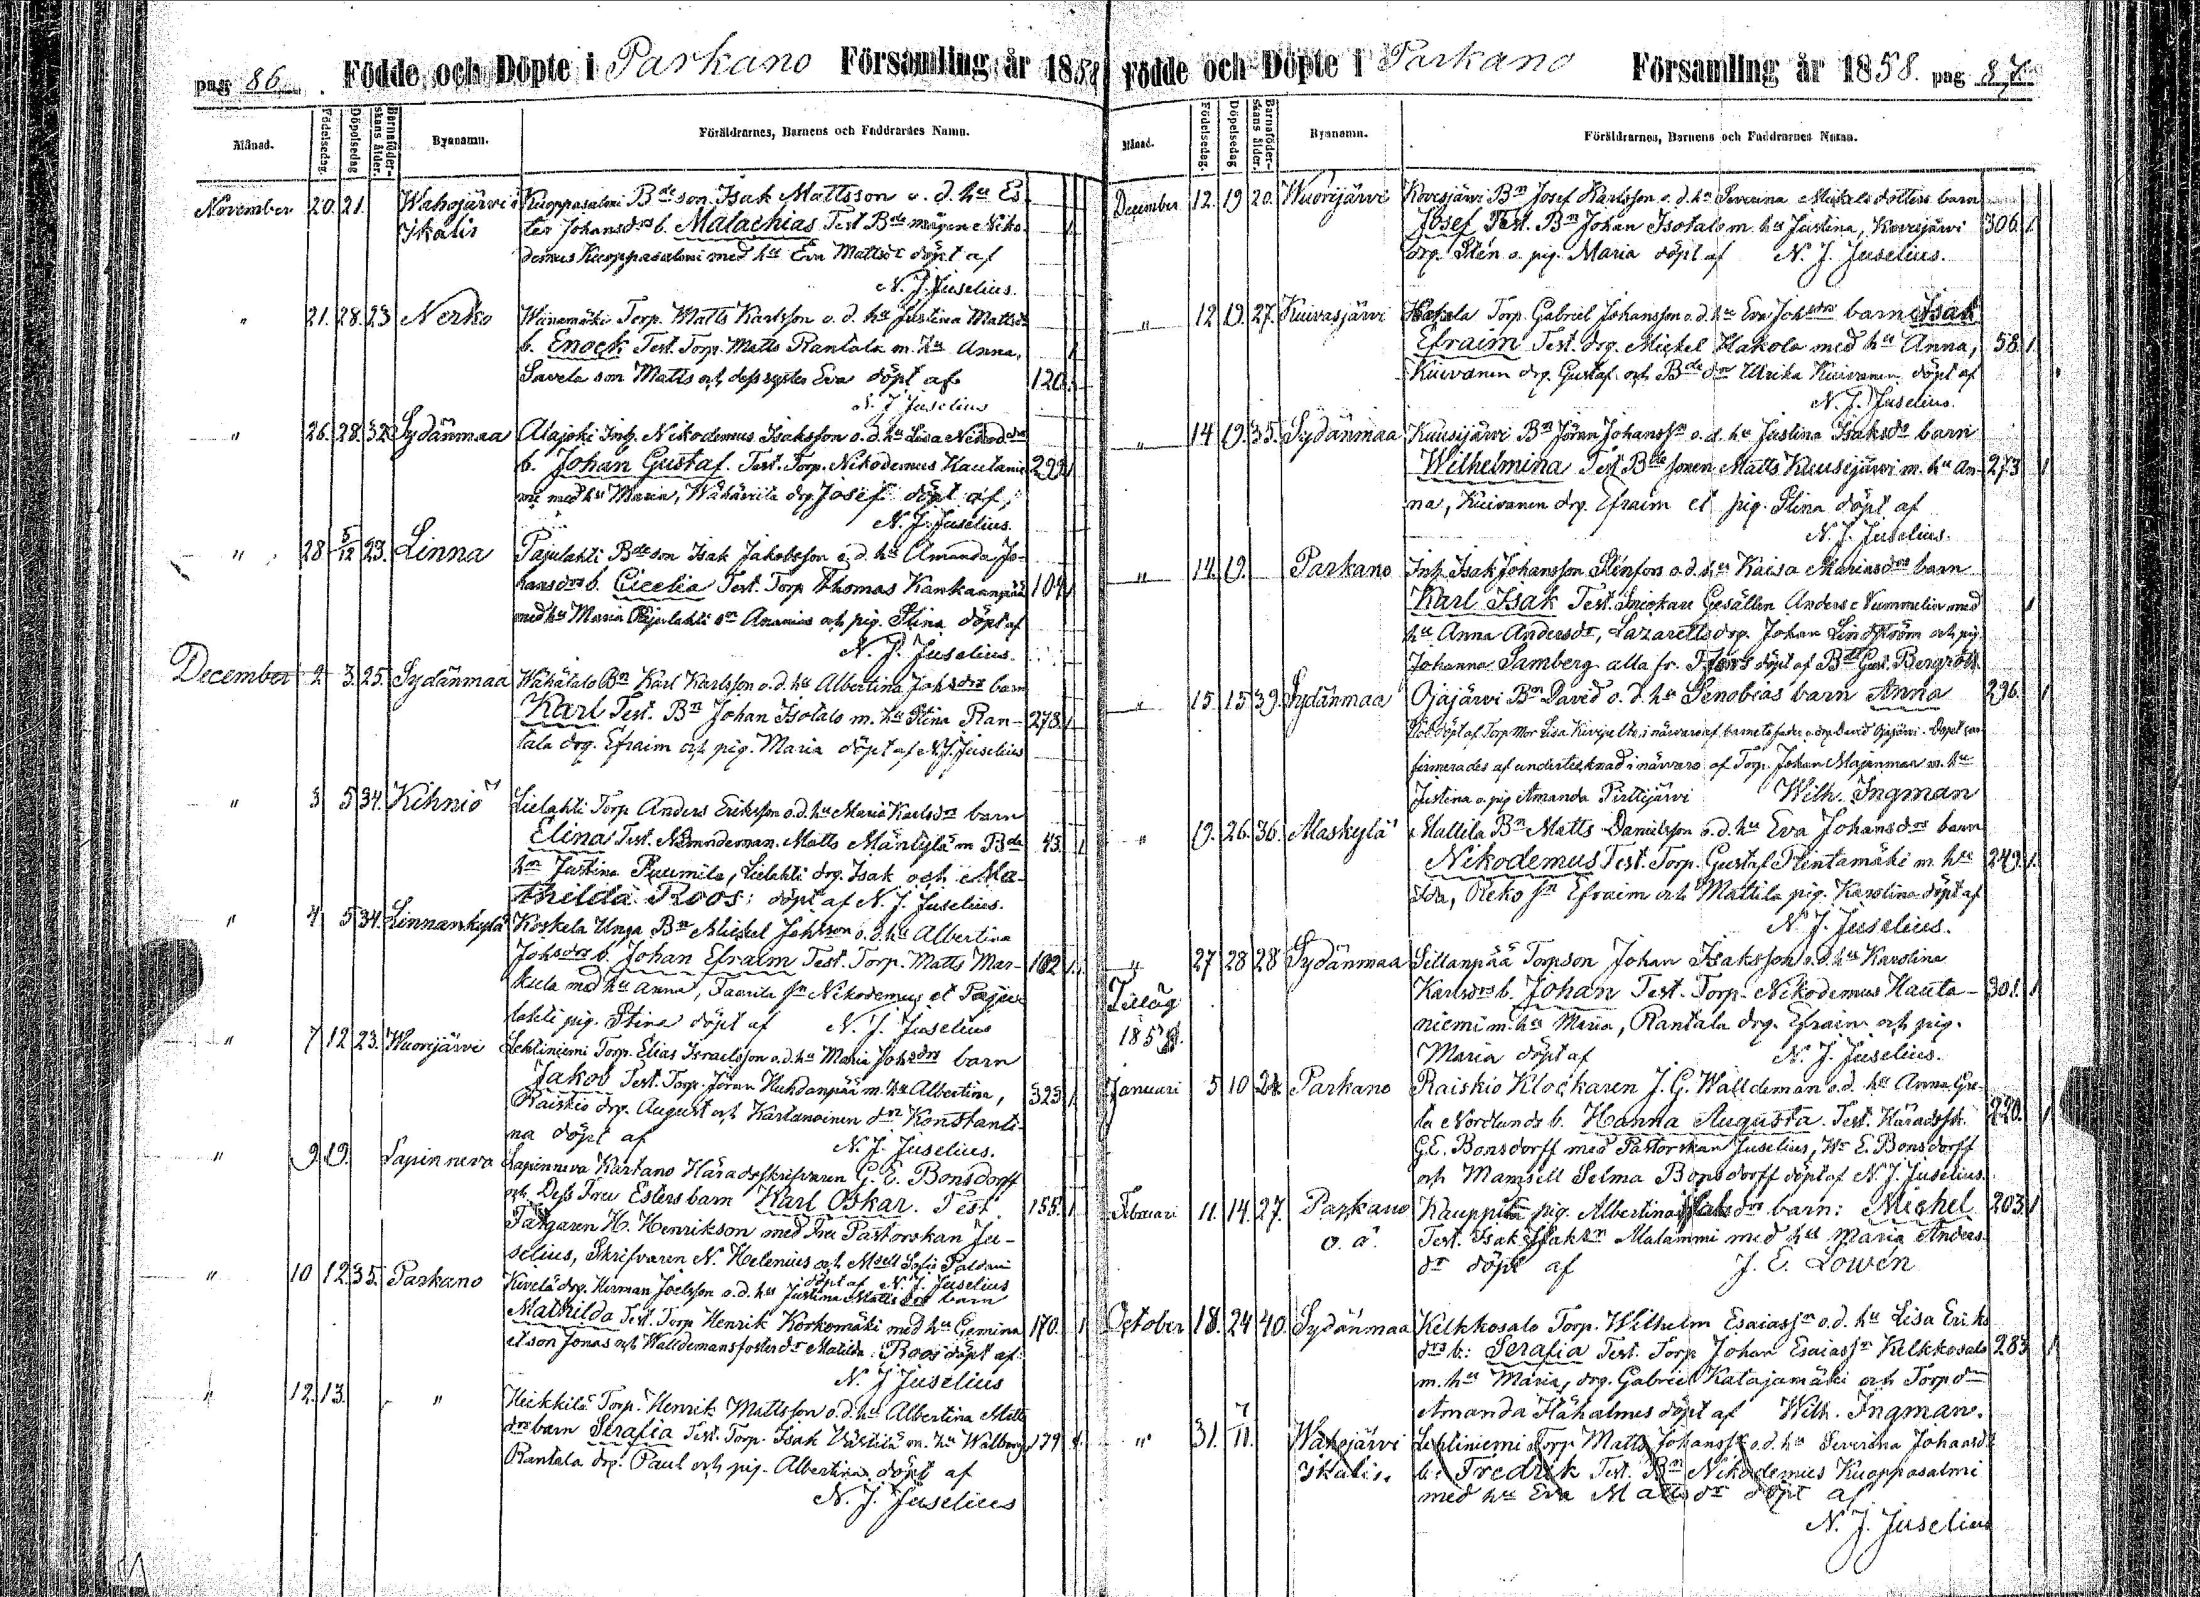 pag 86. Födde och Döpte i Parkano Församling år 1858
Månad. Födelsedag. Döpelsedag Barnaföderskans ålder. Byanamn. Föräldrarnes, Barnens och Faddrarnes Namn.
November 20. 21. Wahojärvi i Kuoppasalmi Bdeson Isak Mattsson o. d. hu Es-
Ikalis ter Johansdrs b. Malachias Test Bde mågen Niko-
demus Kuoppasalmi med hu Eva Mattsdr döpt af
N. J. Juselius.
" 21. 28. 23 Nerko Torp. Matts Karlsson o. d. hu Justina Mattsdrs
b. Enock Test. Torp. Matts Rantala m. hu Anna,
Savela son Matts och dess syster Eva döpt af 120.
N. J Juselius
" 26. 28. 32 Sydänmaa Alajoki Inh. Nikodemus Isaksson o. d. hu Lisa Nikod.drs
b. Johan Gustaf. Test. Torp. Nikodemus Hautanie- 299
mi med hu Maria, drg Josef döpt af
N. J. Juselius.
" 28 5/12 23. Linna Pajulahti Bdeson Isak Jakobsson o. d. hu Amanda Jo-
hansdrs b. Cicelia Test. Torp Thomas Kankaanpää 104
med hu Maria Pajulahti sn Ananias och pig. Stina döpt af
N. J. Juselius.
December 2 3. 25. Sydänmaa Wähätalo Bn Karl Karlsson o. d. hu Albertina Johsdrs barn
Karl Test. Bn Johan Isotalo m. hu Stina Ran- 278
tala drg. Efraim och pig. Maria döpt af N. J. Juselius
" 3 5 34. Kihniö Lielahti Torp Anders Eriksson o. d. hu Maria Karlsdrs barn
Elina Test. Nämndeman. Matts Mäntylä m Bde 45.
hn Justina Puumila, Lielahti drg. Isak och Ma-
thilda Roos: döpt af N. J. Juselius.
" 4 5 34 Linnankylä Koskela Unga Bn Michel Johsson o. d. hu Albertina
Johsdrs b. Johan Efraim Test. Torp. Matts Mar- 102
kula med hu Anna, sn Nikodemus et Paju-
lahti pig. Stina döpt af N. J. Juselius
" 7 12 23. Wuorijärvi Lehtiniemi Torp. Elias Israelsson o. d. hu Maria Johsdrs barn
Jakob Test. Torp. Jöran Huhdanpää m. hu Albertina, 323
Raiskio drg. August och Kartanoinen dr Konstanti-
na döpt af N. J. Juselius.
" 9. 19. Lapinneva Lapinneva Kartano Häradsskrifvaren G. E. Bonsdorff
och Dess Fru Esters barn Karl Oskar. Test. 155.
Färgaren H. Henrikson med Fru Pastorskan Ju-
selius, Skrifvaren N. Helenius och Msell Sofie Paldani
döpt af N. J. Juselius
" 10 12. 35. Parkano Kivelä drg. Herman Joelsson o. d. hu Justina Matts drs barn
Mathilda Test. Torp Henrik Korkomäki med hu Gemina 170.
et son Jonas och Walldemans fosterdr Matilda Roos döpt af
N. J Juselius
" 12. 13. " Heikkilä Torp. Henrik Mattsson o. d. hu Albertina Matts
drs barn Serafia Test. Torp. Isak Västilä m. hu Walborg 179
Rantala drg. Paul och pig. Albertina döpt af
N. J. Juselius
Födde och Döpte i Parkano Församling år 1858. pag 87.
Månad. Födelsedag. Döpelsedag Barnaföderskans ålder. Byanamn. Föräldrarnes, Barnens och Faddrarnes Namn.
December 12. 19 20. Wuorijärvi Kovesjärvi Bn Josef Karlsson o. d. hu Severina Mickelsdotters barn
Josef Test. Bn Johan Isotalo m. hu Justina, Kovesjärvi 306.
drg. Stén o. pig. Maria döpt af N. J. Juselius.
" 12 19. 27. Kuivasjärvi Hakola Torp. Gabriel Johansson o. d. hu Eva Johsdrs barn Isak
Efraim Test. drg. Michel Hakola med hu Anna, 58.
Kuivanen drg. Gustaf och Bdedn Ulrika Kuivanen döpt af
N. J. Juselius.
" 14 19. 35. Sydänmaa Kuusijärvi Bn Jöran Johanssn o. d. hu Justina Isaksdrs barn
Wilhelmina Test Bdesonen Matts Kuusijärvi m. hu An- 273
na, Kuivanen drg. Efraim et pig. Stina döpt af
N. J. Juselius.
" 14. 19. Parkano Inh. Isak Johansson Stenfors o. d. hu Kaisa Mariasdrs barn
Karl Isak Test. Snickare Gesällen Anders Nummelin med
hu Anna Andersdr, Lazarettsdrg. Johan Lindström och pig.
Johanna Samberg alla fr. döpt af Gust. Bergroth.
" 15. 15 39. Sydänmaa Ojajärvi Bn David o. d. hu Senobias barn Anna 296.
Nöd döpt af Torp. Mor Lisa i närvaro af barnets fader o. drg David Ojajärvi. Dopet con-
firmerades af undertecknad i närvaro af Torp. Johan Majanmaa m. hu
Justina o. pig Amanda Pirttijärvi Wilh. Ingman
" 19. 26. 36. Alaskylä Mattila Bn Matts Danielsson o. d. hu Eva Johansdrs barn
Nikodemus Test. Torp. Gustaf m. hu 249.
Ida, sn Efraim och Mattila pig. Karolina döpt af
N. J. Juselius.
" 27 28 28 Sydänmaa Sillanpää Torpson Johan Isaksson o. d. hu Karolina
Karlsdrs b. Johan Test. Torp. Nikodemus Hauta- 301.
niemi m. hu Maria, Rantala drg. Efraim och pig.
Maria döpt af N. J. Juselius.
Tilläg
1858.
Januari 5 10 24 Parkano Raiskio Klockaren J. G. Walldeman o. d. hu Anna Gre-
ta Nordlunds b. Hanna Augusta. Test. Häradsskr. 220.
G. E. Bonsdorff med Pastorskan Juselius, Hr E. Bonsdorff
och Mamsell Selma Bonsdorff döpt af N. J. Juselius.
Februari 11. 14. 27. Parkano Kauppila pig. Albertina Isaksdrs barn: Michel 203.
o. ä. Test. Isak Isaksn Malammi med hu Maria Anders-
dr döpt af J. E. Lowén
October 18. 24 40. Sydänmaa Kelkkosalo Torp. Wilhelm Esaiassn o. d. hu Lisa Eriks
drs b: Serafia Test. Torp Johan Esaiassn Kelkkosalo 283
m. hu Maria, drg. Gabriel Katajamäki och Torp dn
Amanda Hähalmes döpt af Wilh. Ingman.
" 31. 7/11. Wahojärvi Lehtiniemi Torp. Matts Johanssn o. d. hu Severina Johansd.
Ikalis. b: Fredrik Test. Bn Nikodemus Kuoppasalmi
med hu Eva Mattsdr döpt af
N. J. Juselius